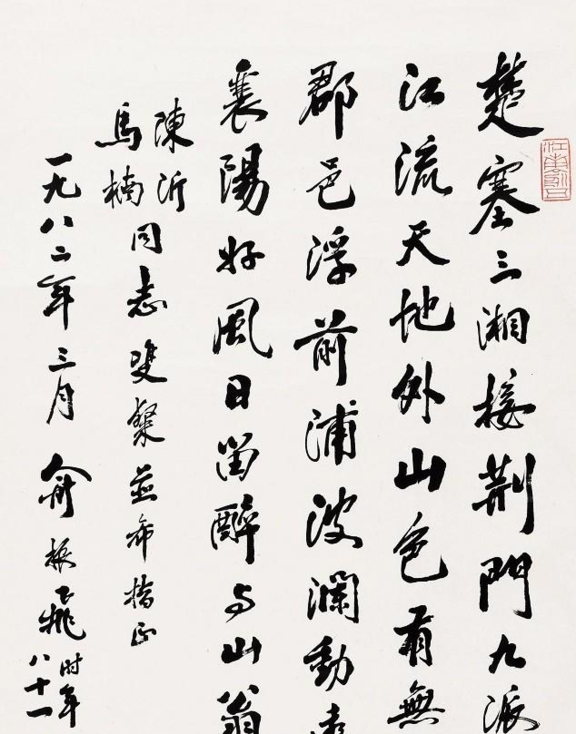 楚塞三湘接荊門九派
江流天地外山色有無
郡邑浮前浦波瀾動
襄陽好風日留醉与山翁
陳沂
馬楠
同志雙粲並希正
一九八二年三月俞振飛
时年
八十一